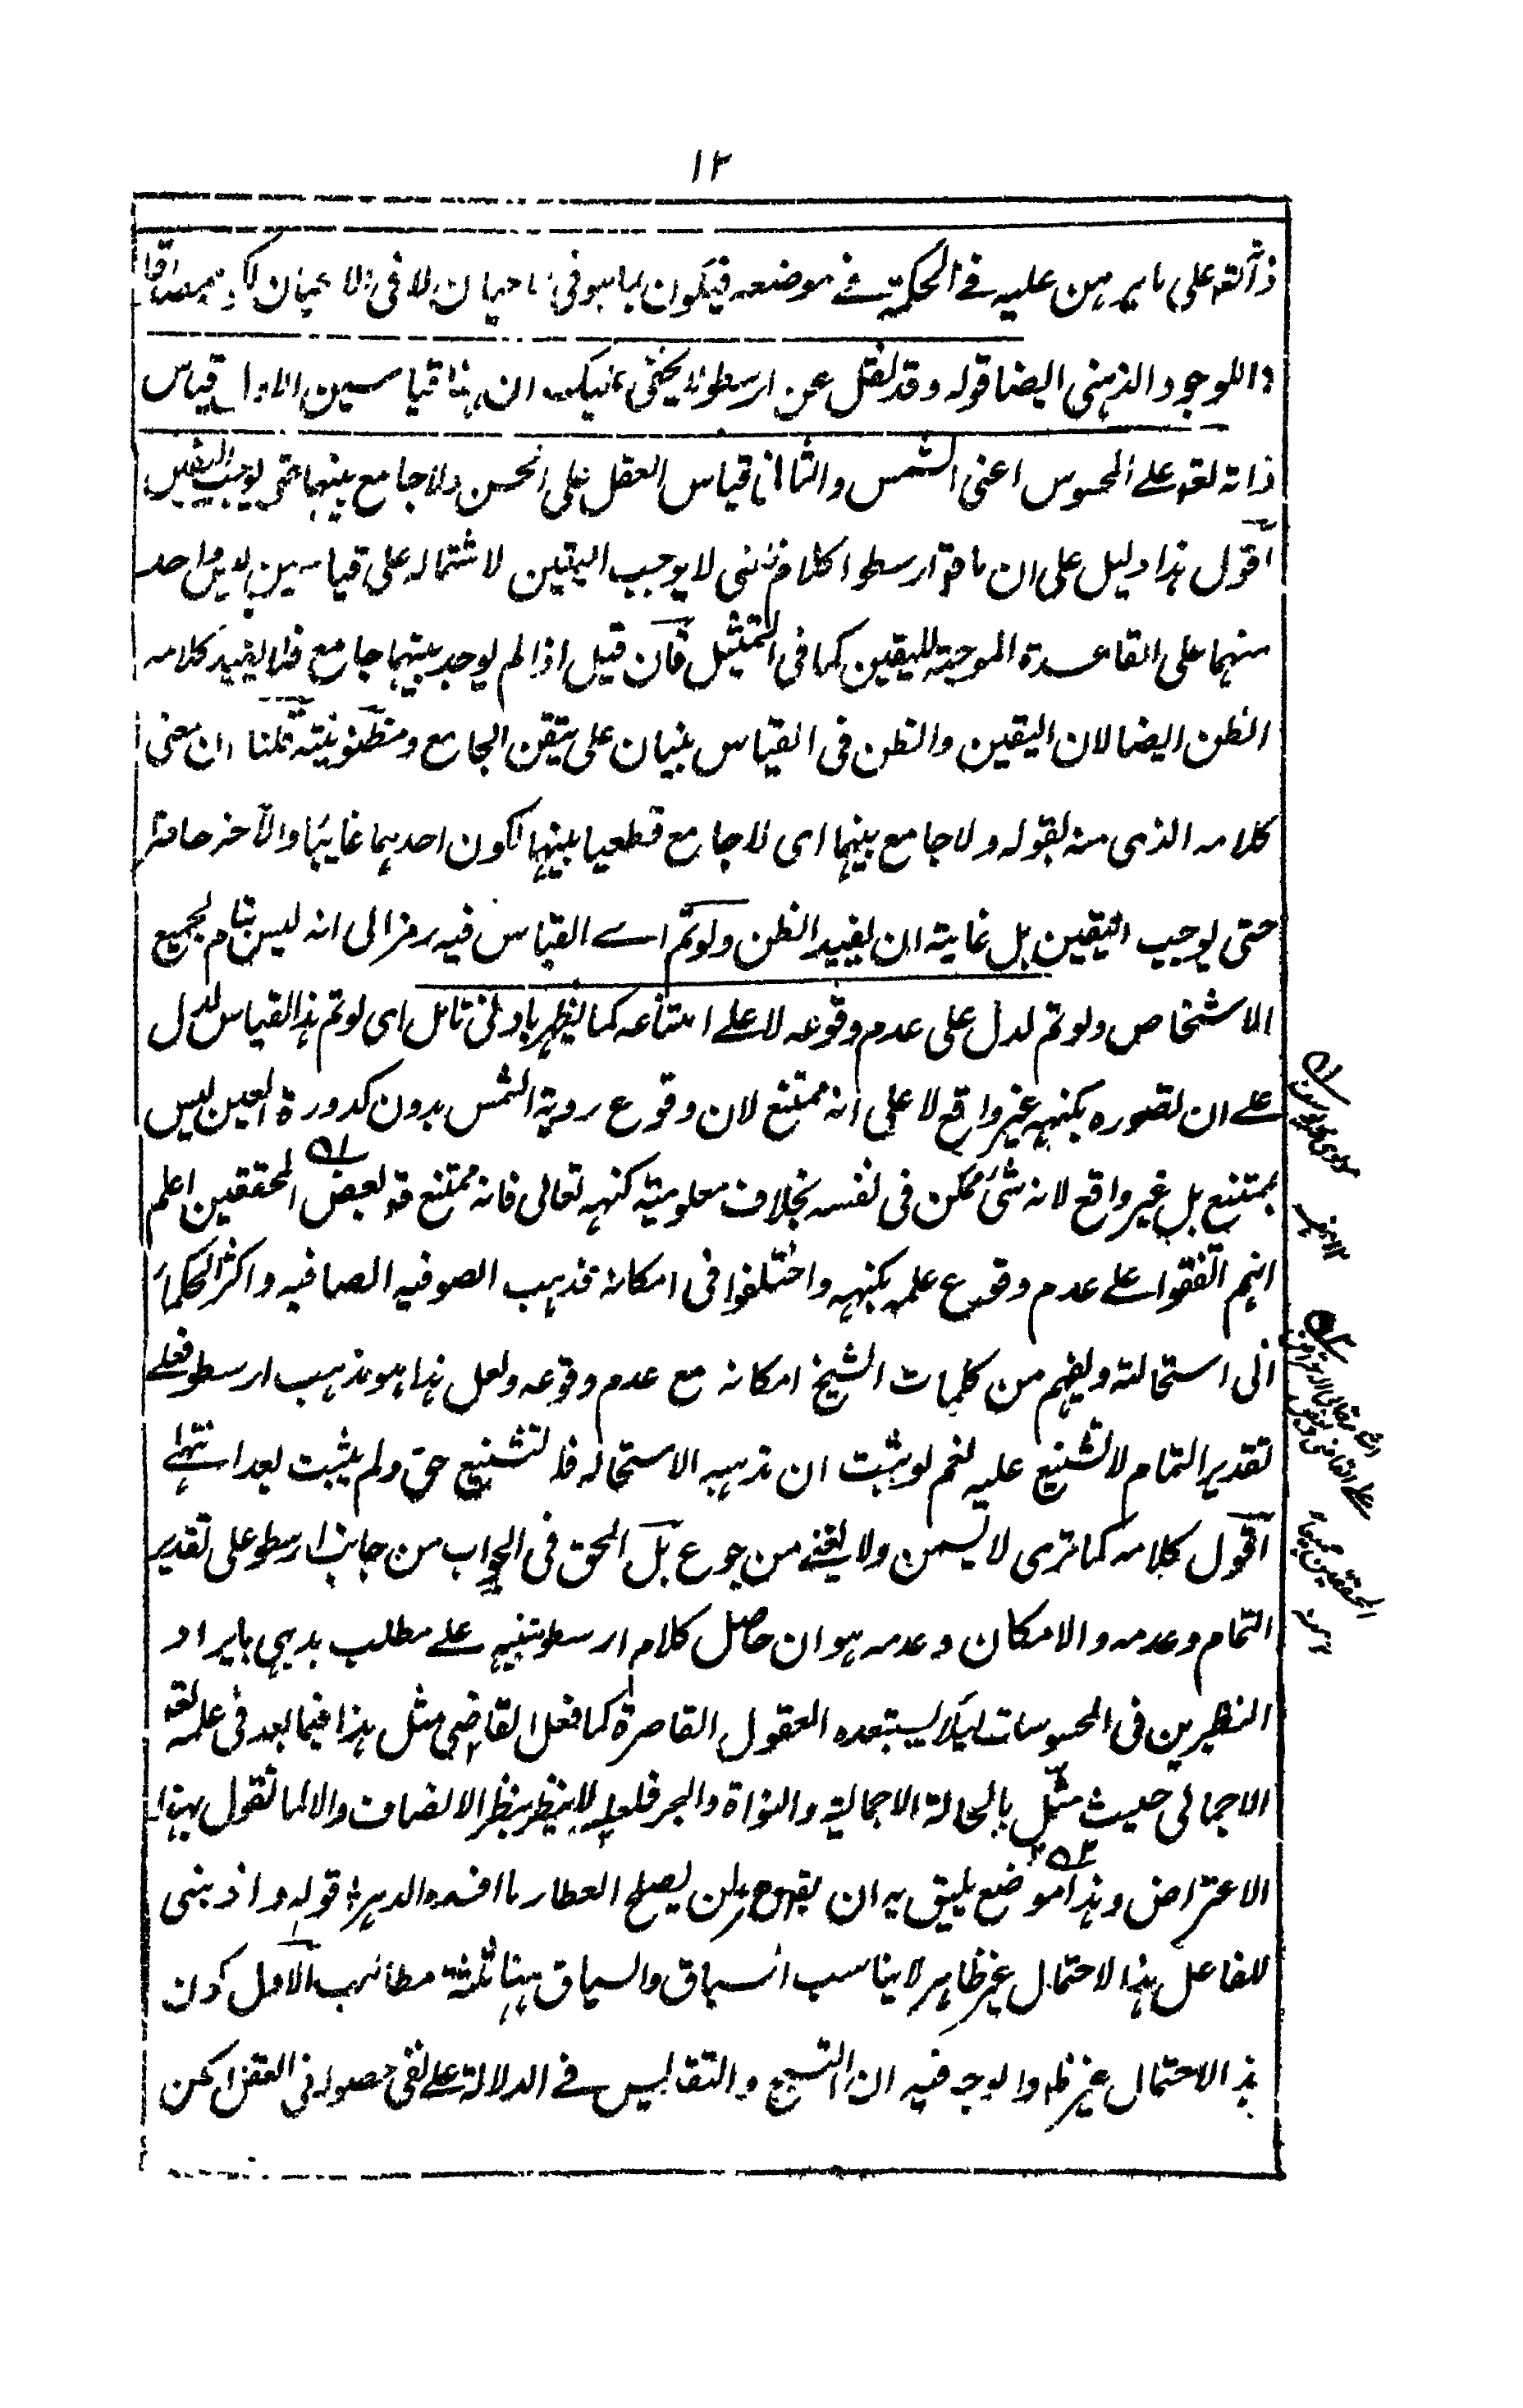 ١٢
ذاته تعه على ما يبرهن عليه فے الحكمة فے موضعه فيكون لما هو فى الاعيان لا فى الاعيان مصداقا
للوجود الذهنى ايضا قوله وقد نقل عن ارسطو لا يخفى عليك ان هنا قياسين الاول قياس
ذاته تعه علے المحسوس اعنى الشمس والثانى قياس العقل على الحس ولا جامع بينهما حتى يوجب اليقين
اقول هذا دليل على ان ما قال ارسطو كلام ظنى لا يوجب اليقين لاشتماله على قياسين ليس واحد
منهما على القاعدة الموجبة لليقين كما فى التمثيل فان قيل اذا لم يوجد بينهما جامع فلا يفيد كلامه
الظن ايضا لان اليقين والظن فى القياس يبنيان على تيقن الجامع ومظنونيته قلنا ان معنى
كلامه الذى منه بقوله ولا جامع بينهما اى لا جامع قطعيا بينهما لكون احدهما غايبا والآخر حاضرا
حتى يوجب اليقين بل غايته ان يفيد الظن ولو تم اے القياس فيه رمز الى انه ليس بتام لجميع
الاشخاص ولو تم لدل على عدم وقوعه لا علے امتناعه كما يظهر بادنى تامل اى لو تم هذا القياس لدل
علے ان تصوره بكنهه غير واقع لا على انه ممتنع لان وقوع روية الشمس بدون كدورة العين ليس
بممتنع بل غير واقع لانه شئ ممكن فى نفسه بخلاف معلومية كنهه تعالى فانه ممتنع قد بعض المحققين اعلم
انهم اتفقوا علے عدم وقوع علمه بكنهه واختلفوا فى امكانه فذهب الصوفيه الصافيه واكثر الحكماء
الى استحالته ويفهم من كلمات الشيخ امكانه مع عدم وقوعه ولعل هذا هو مذهب ارسطو فعلے
تقدير التمام لا تشنيع عليه نعم لو ثبت ان مذهبه الاستحاله فالتشنيع حق ولم يثبت بعد انتهى
اقول كلامه كما ترى لا يسمن ولا يغنے من جوع بل الحق فى الجواب من جانب ارسطو على تقدير
التمام وعدمه والامكان وعدمه هو ان حاصل كلام ارسطو تنبيه علے مطلب بديهى بايراد
النظيرين فى المحسوسات ليلا يستبعده العقول القاصرة كما فعل القاضى مثل هذا فيما بعد فى علمه تعه
الاجمالى حيث مثل بالحالة الاجمالية والنواة والبحر فلعله لا ينظر بنظر الانصاف والا لما تقول بهذا
الاعتراض وهذا موضع يليق به ان يقول ع لن يصلح العطار ما افسده الدهر قوله واذ بنى
للفاعل هذا الاحتمال غير ظاهر لا يناسب السباق والسياق ههنا ثلثة مطالب الاول كون
هذا الاحتمال غير ظ والوجه فيه ان التسبيح والتقاليس فے الدلالة علے نفى حصوله فى العقل لكن